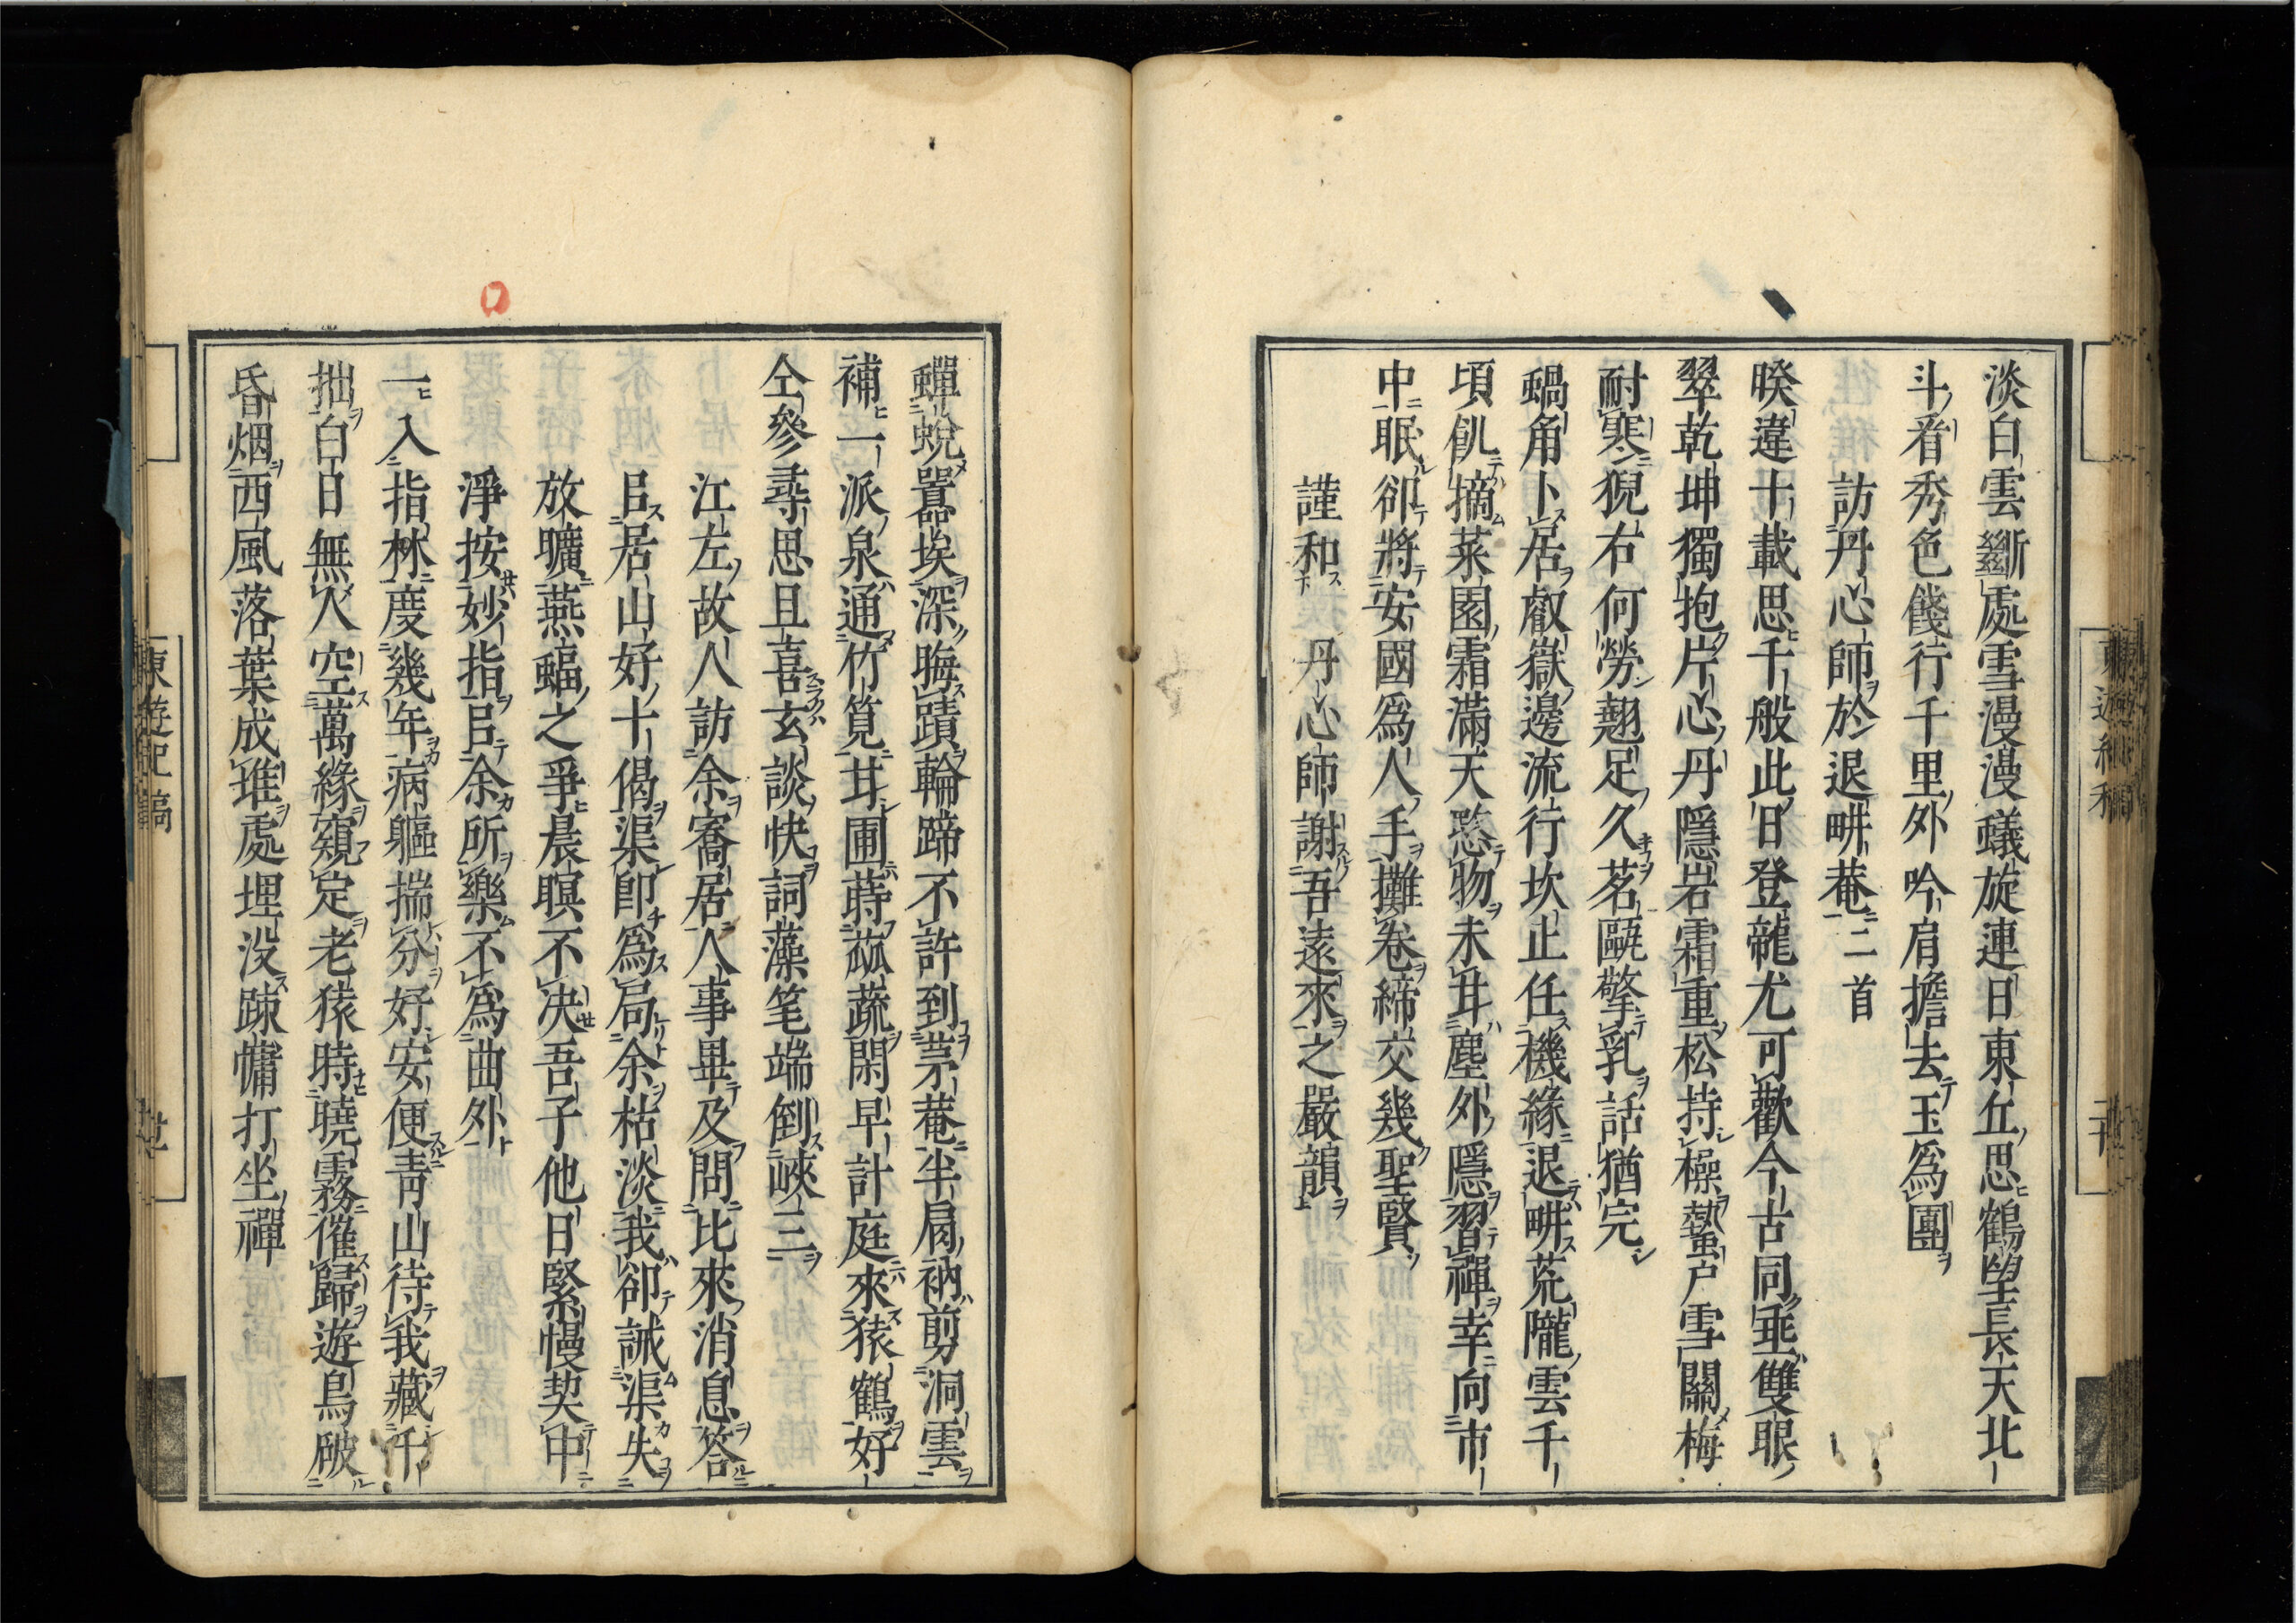 淡白雲斷處雪漫漫蟻旋連日東丘思鶴望長天北
斗看秀色餞行千里外吟肩擔去玉為團
訪丹心師於退畊菴二首
睽違十載思千般此日登龍尤可歡今古同垂雙眼
翠乾坤獨抱片心丹隱岩霜重松持操蟄戶雪關梅
耐寒猊右何勞翹足久茗甌擎乳話猶完
蝸角卜居叡嶽邊流行坎止任機緣退畊荒隴雲千
頃飢摘菜園霜滿天愍物未甘塵外隱習禪幸向市
中眠卻將安國為人手攤卷締交幾聖賢
謹和丹心師謝吾遠來之嚴韻
蟬蛻囂埃深晦蹟輪蹄不許到茅菴半肩衲剪洞雲
補一派泉通竹筧甘圃蒔蓏蔬閑早計庭來猿鶴好
仝參尋思且喜玄談快詞藻笔端倒峽三
江左故人訪余寓居人事畢及問比來消息答
㠯居山好十偈渠卽為局余枯淡我卻誡渠失
放曠燕蝠之爭晨暝不決吾子他日緊慢契中
淨按妙指㠯余所樂不為曲外
一入指林慶幾年病軀揣分好安便青山待我藏千
拙白日無人空萬緣窺定老猿時曉霧催歸遊鳥破
昏烟西風落葉成堆處埋没踈慵打坐禪
東遊紀稿